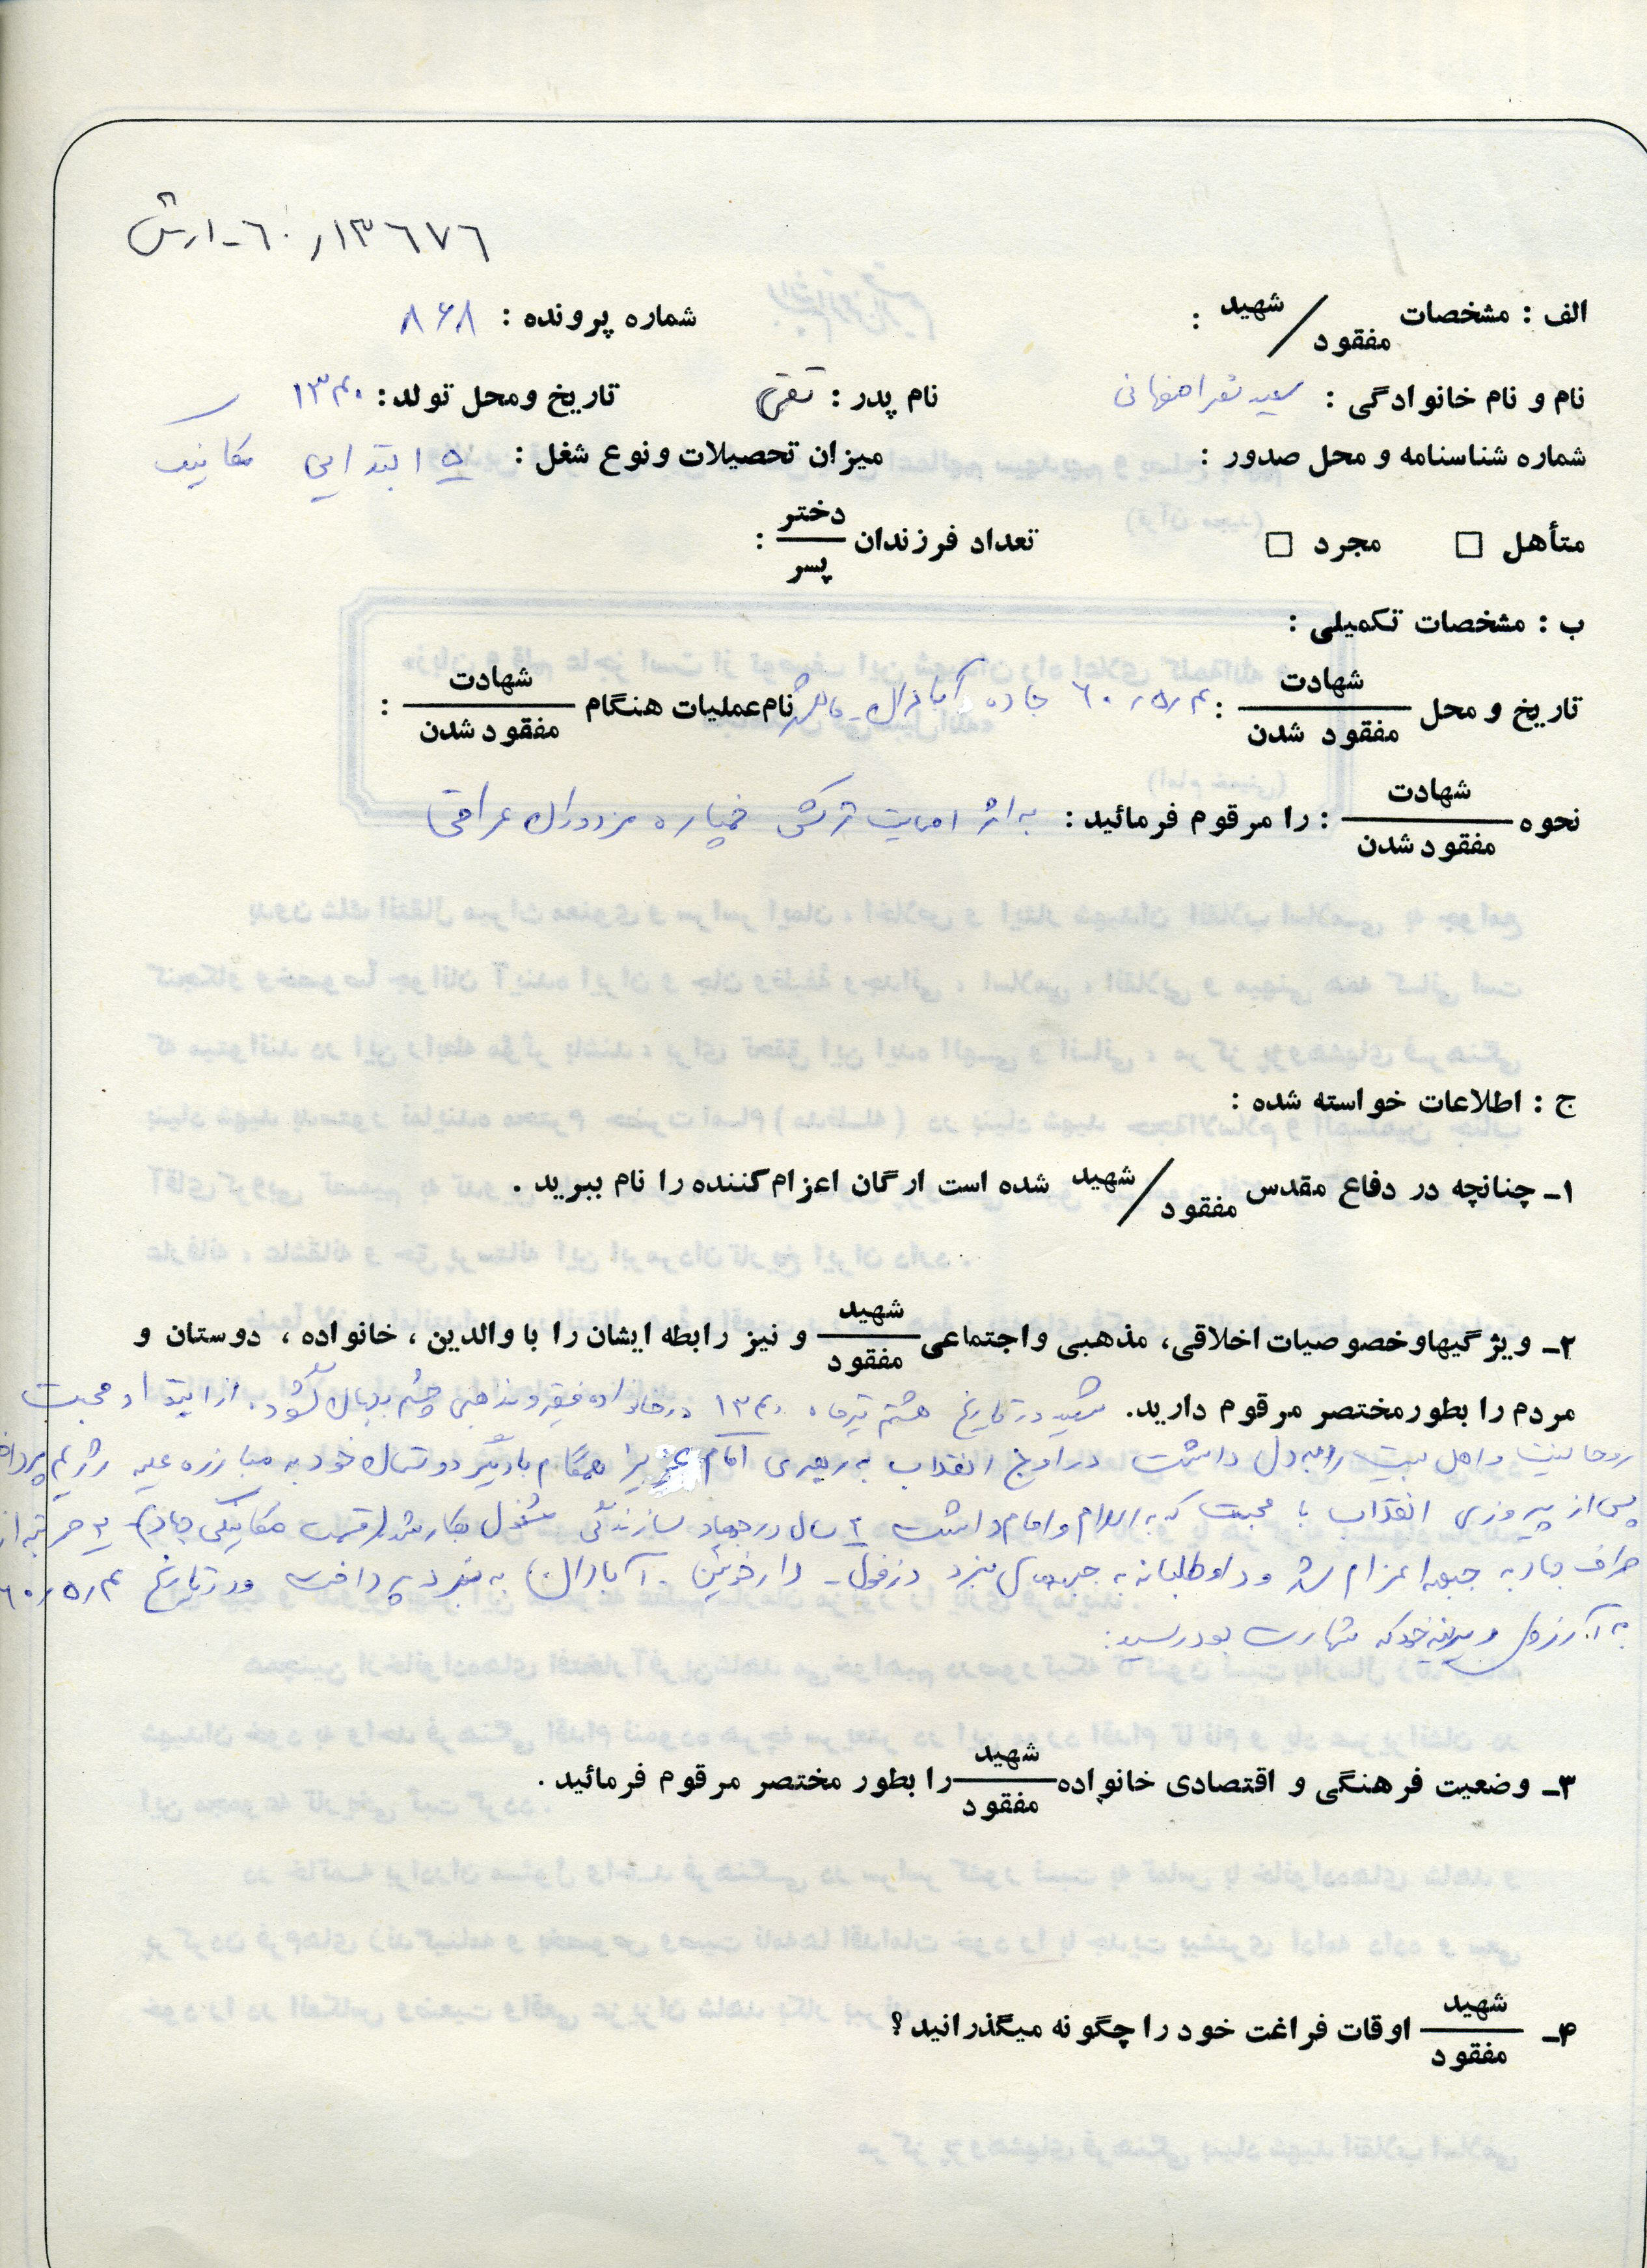 ۱۳۶۷۶ر۶۰-ارتش
الف : مشخصات شهید/مفقود : شماره پرونده : ۸۶۸
نام و نام خانوادگی : سعید نصراصفهانی نام پدر : تقی تاریخ ومحل تولد: ۱۳۴۰
شماره شناسنامه و محل صدور : میزان تحصیلات ونوع شغل : ۵ ابتدایی مکانیک
متأهل □ مجرد □ تعداد فرزندان دختر/پسر :
ب : مشخصات تکمیلی :
تاریخ و محل شهادت/مفقود شدن : ۶۰ر۵ر۴ جاده آبادان-ماهشهر نام عملیات هنگام شهادت/مفقود شدن :
نحوه شهادت/مفقود شدن : را مرقوم فرمائید : به اثر اصابت ترکش خمپاره مزدوران عراقی
ج : اطلاعات خواسته شده :
۱- چنانچه در دفاع مقدس شهید/مفقود شده است ارگان اعزام کننده را نام ببرید .
۲- ویژگیهاوخصوصیات اخلاقی، مذهبی واجتماعی شهید/مفقود و نیز رابطه ایشان را با والدین ، خانواده ، دوستان و
مردم را بطورمختصر مرقوم دارید. شهید در تاریخ هشتم تیرماه ۱۳۴۰ در خانواده فقیر و مذهبی چشم بجهان گشود. از ابتدا و محبت
روحانیت و اهل بیت را به دل داشت در اوج انقلاب به رهبری امام عزیز همگام با دیگر دوستان خود به مبارزه علیه رژیم پرداخت
پس از پیروزی انقلاب با محبت که به اسلام و امام داشت ۲ سال در جهاد سازندگی مشغول بکار شد (قسمت مکانیکی جهاد) مرتبه از
طرف جهاد به جبهه اعزام شد و داوطلبانه به جبهه‌های نبرد دزفول - دارخوین - آبادان به نبرد پرداخت و در تاریخ ۶۰ر۵ر۴
به آرزوی دیرینه خود که شهادت بود رسید.
۳- وضعیت فرهنگی و اقتصادی خانواده شهید/مفقود را بطور مختصر مرقوم فرمائید .
۴- شهید/مفقود اوقات فراغت خود را چگونه میگذرانید ؟